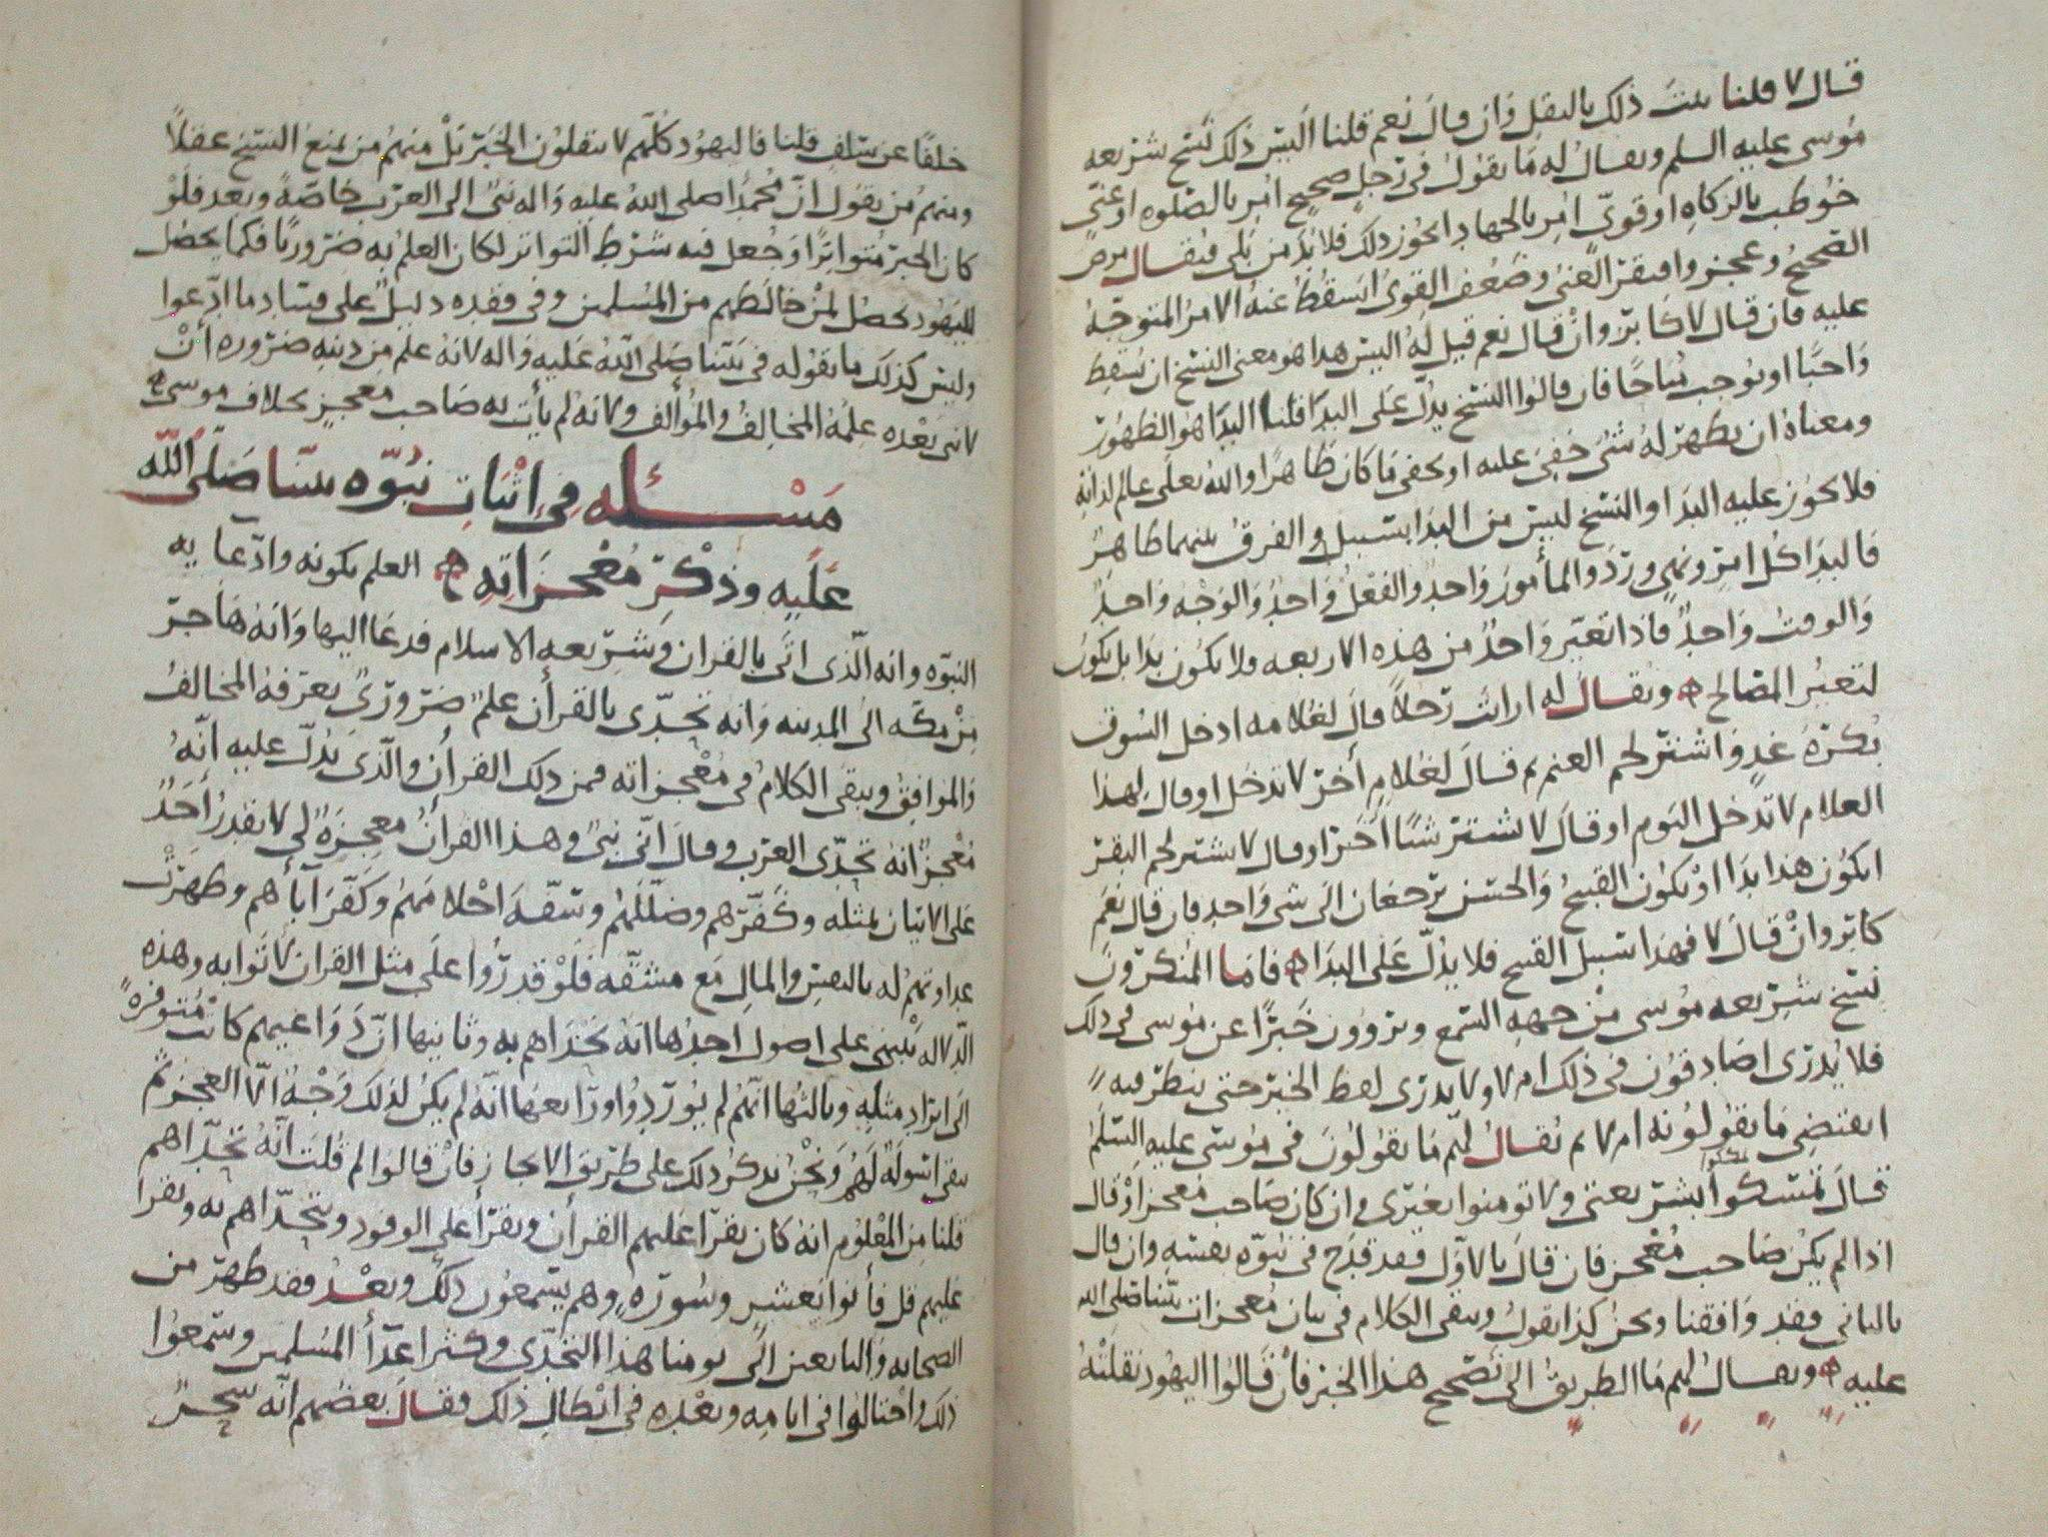 قال لا قلنا يثبت ذلك بالنقل وان قال نعم قلنا اليس ذلك نسخ شريعه
موسى عليه السلم ويقال له ما يقول في رجل صحيح امر بالصلوه او غني
خوطب بالزكاه او قوي امر بالجهاد ايجوز ذلك فلا بد من بلى فيقال مرض
الصحيح وعجز وافتقر الغني وضعف القوي ايسقط عنه الامر المتوجه
عليه فان قال لا كابر وان قال نعم قيل له اليس هذا هو معنى النسخ ان يسقط
واجبا او يوجب مباحا فان قالوا النسخ يدل على البدا قلنا البدا هو الظهور
ومعناه ان يظهر له شئ خفي عليه او يخفى ما كان ظاهرا والله تعلى عالم لذاته
فلا يجوز عليه البدا والنسخ ليس من البدا بسبيل والفرق بينهما ظاهر
فالبدا كل امر ونهي ورد والمأمور واحد والفعل واحد والوجه واحد
والوقت واحد فاذا تغير واحد من هذه الاربعه فلا يكون بدا بل يكون
لتغير المصالح ويقال له ارايت رجلا قال لغلامه ادخل السوق
بكرة غد واشتر لحم الغنم ثم قال لغلام أخر لا تدخل او قال لهذا
الغلام لا تدخل اليوم او قال لا تشتر شيا أخر او قال لا تشتر لحم البقر
ايكون هذا بدا او يكون القبيح والحسن يرجعان الى شي واحد فان قال نعم
كابر وان قال لا فهذا سبيل القبيح فلا يدل على البدا فاما المنكرون
نسخ شريعه موسى من جهه السمع ويروون خبرا عن موسى في ذلك
فلا يدرى اصادقون في ذلك ام لا ولا يدرى لفظ الخبر حتى ينظر فيه
ايقتضي ما يقولونه ام لا ثم يقال لهم ما يقولون في موسى عليه السلم
قال تمسكوا بشريعتي ولا تومنوا بغيري وان كان صاحب معجز او قال
اذا لم يكن صاحب معجز فان قال بالاول فقد قدح في نبوه نفسه وان قال
بالثاني فقد وافقنا ونحن كذا نقول ويبقى الكلام في بيان معجزات نبينا صلى الله
عليه ويقال لهم ما الطريق الى تصحيح هذا الخبر فان قالوا اليهود نقلته
خلفا عن سلف قلنا فاليهود كلهم لا ينقلون الخبر بل منهم من يمنع النسخ عقلا
ومنهم من يقول ان محمدا صلى الله عليه واله نبي الى العرب خاصة وبعد فلو
كان الخبر متواترا وجعل فيه شرط التواتر لكان العلم به ضروريا فكما يحصل
لليهود يحصل لمن خالطهم من المسلمين وفي فقده دليل على فساد ما ادعوا
وليس كذلك ما نقوله في نبينا صلى الله عليه واله لانه علم من دينه ضروره أن
لا نبي بعده علمه المخالف والمؤالف ولانه لم يأت به صاحب معجز بخلاف موسى
مسئله في اثبات نبوه نبينا صلى الله
عليه وذكر معجزاته العلم بكونه وادعايه
النبوه وانه الذي اتى بالقران وشريعه الاسلام فدعا اليها وانه هاجر
من مكه الى المدينه وانه تحدى بالقرأن علم ضروري يعرفه المخالف
والموافق ويبقى الكلام في معجزاته فمن ذلك القرأن والذي يدل عليه انه
معجز انه تحدى العرب وقال اني نبي وهذا القرأن معجزة لي لا يقدر أحد
على الاتيان بمثله وكفرهم وضللهم وسفه احلامهم وكفر آبأهم وظهرت
عداوتهم له بالنفس والمال مع مشقه فلو قدروا على مثل القران لاتوا به وهذه
الدلاله تنبني على اصول احدها انه تحداهم به وثانيها ان دواعيهم كانت متوفرة
الى ايراد مثله وثالثها انهم لم يوردوا ورابعها انه لم يكن لذلك وجه الا العجز ثم
نبقي اسولة لهم ونحن نذكر ذلك على طريق الايجاز فان قالوا لم قلت انه تحداهم
قلنا من المعلوم انه كان يقرا عليهم القرأن ويقرأ على الوفود ويتحداهم به ويقرا
عليهم قل فأتوا بعشر وسورة وهم يسمعون ذلك وبعد فقد ظهر من
الصحابه والتابعين الى يومنا هذا التحدي وكثر اعدأ المسلمين وسمعوا
ذلك واحتالوا في ايامه وبعده في ابطال ذلك فقال بعضهم انه سحر